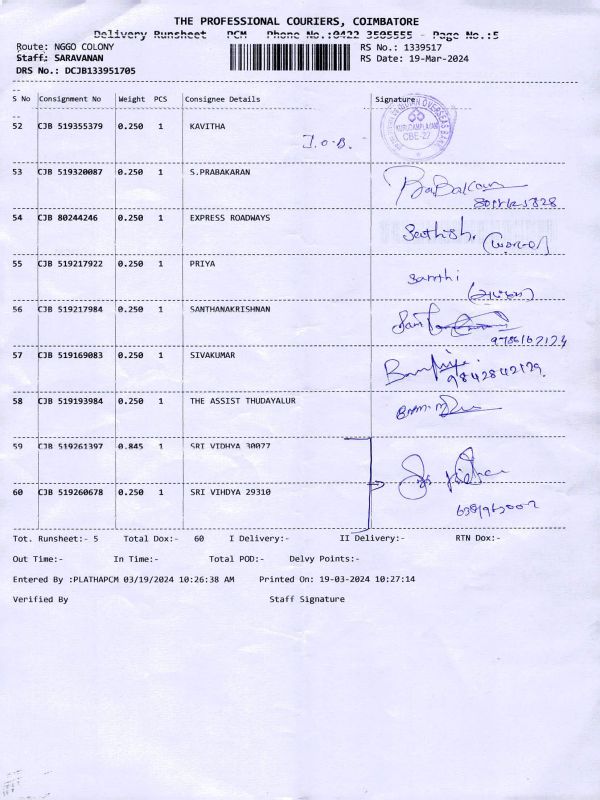 THE PROFESSIONAL COURIERS, COIMBATORE
Delivery Runsheet PCM Phone No.:0422 3505555 - Page No.:5
Route: NGGO COLONY RS No.: 1339517
Staff: SARAVANAN RS Date: 19-Mar-2024
DRS No.: DCJB133951705
S No Consignment No Weight PCS Consignee Details Signature
52 CJB 519355379 0.250 1 KAVITHA
I.O.B.
53 CJB 519320087 0.250 1 S.PRABAKARAN
54 CJB 80244246 0.250 1 EXPRESS ROADWAYS
Sathish.
55 CJB 519217922 0.250 1 PRIYA
56 CJB 519217984 0.250 1 SANTHANAKRISHNAN
57 CJB 519169083 0.250 1 SIVAKUMAR
9842842129.
58 CJB 519193984 0.250 1 THE ASSIST THUDAYALUR
59 CJB 519261397 0.845 1 SRI VIDHYA 30077
60 CJB 519260678 0.250 1 SRI VIHDYA 29310
Tot. Runsheet:- 5 Total Dox:- 60 I Delivery:- II Delivery:- RTN Dox:-
Out Time:- In Time:- Total POD:- Delvy Points:-
Entered By :PLATHAPCM 03/19/2024 10:26:38 AM Printed On: 19-03-2024 10:27:14
Verified By Staff Signature